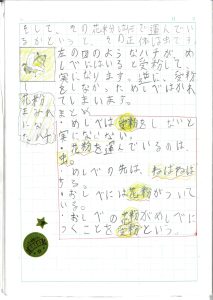 そして、その花粉は何で運んでい
るかというと、その正体ははちです。
左の図のようなハチが、め
しべにはいると受粉して、
実になります。逆に、受粉
をしなかっためしべはかれ
てしまいます。
花粉
まみれ
になった
ハチ
まとめ
・めしべは受粉をしないと
実にならない。
・花粉を運んでいるのは、
虫。
・めしべの先は、ねばねば
・おしべには花粉がついて
いる。
・おしべの花粉がめしべに
つくことを受粉という。